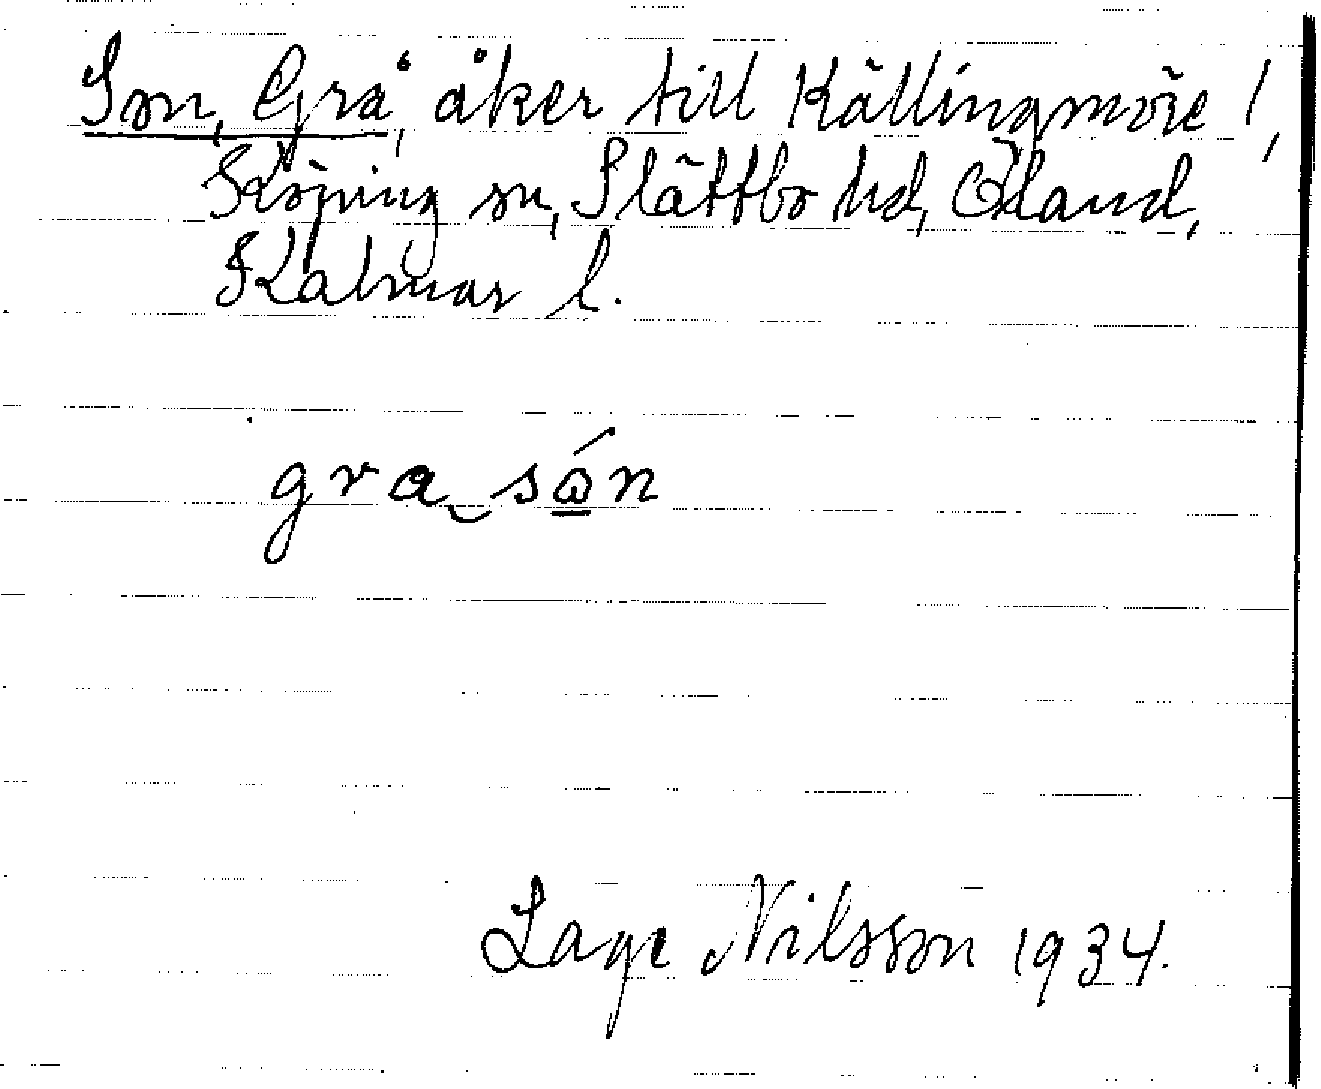 Son, Grå, åker till Källingmöre 1,
Köping sn, Slättbo hd, Öland,
Kalmar l.
gra són
Lage Nilsson 1934.